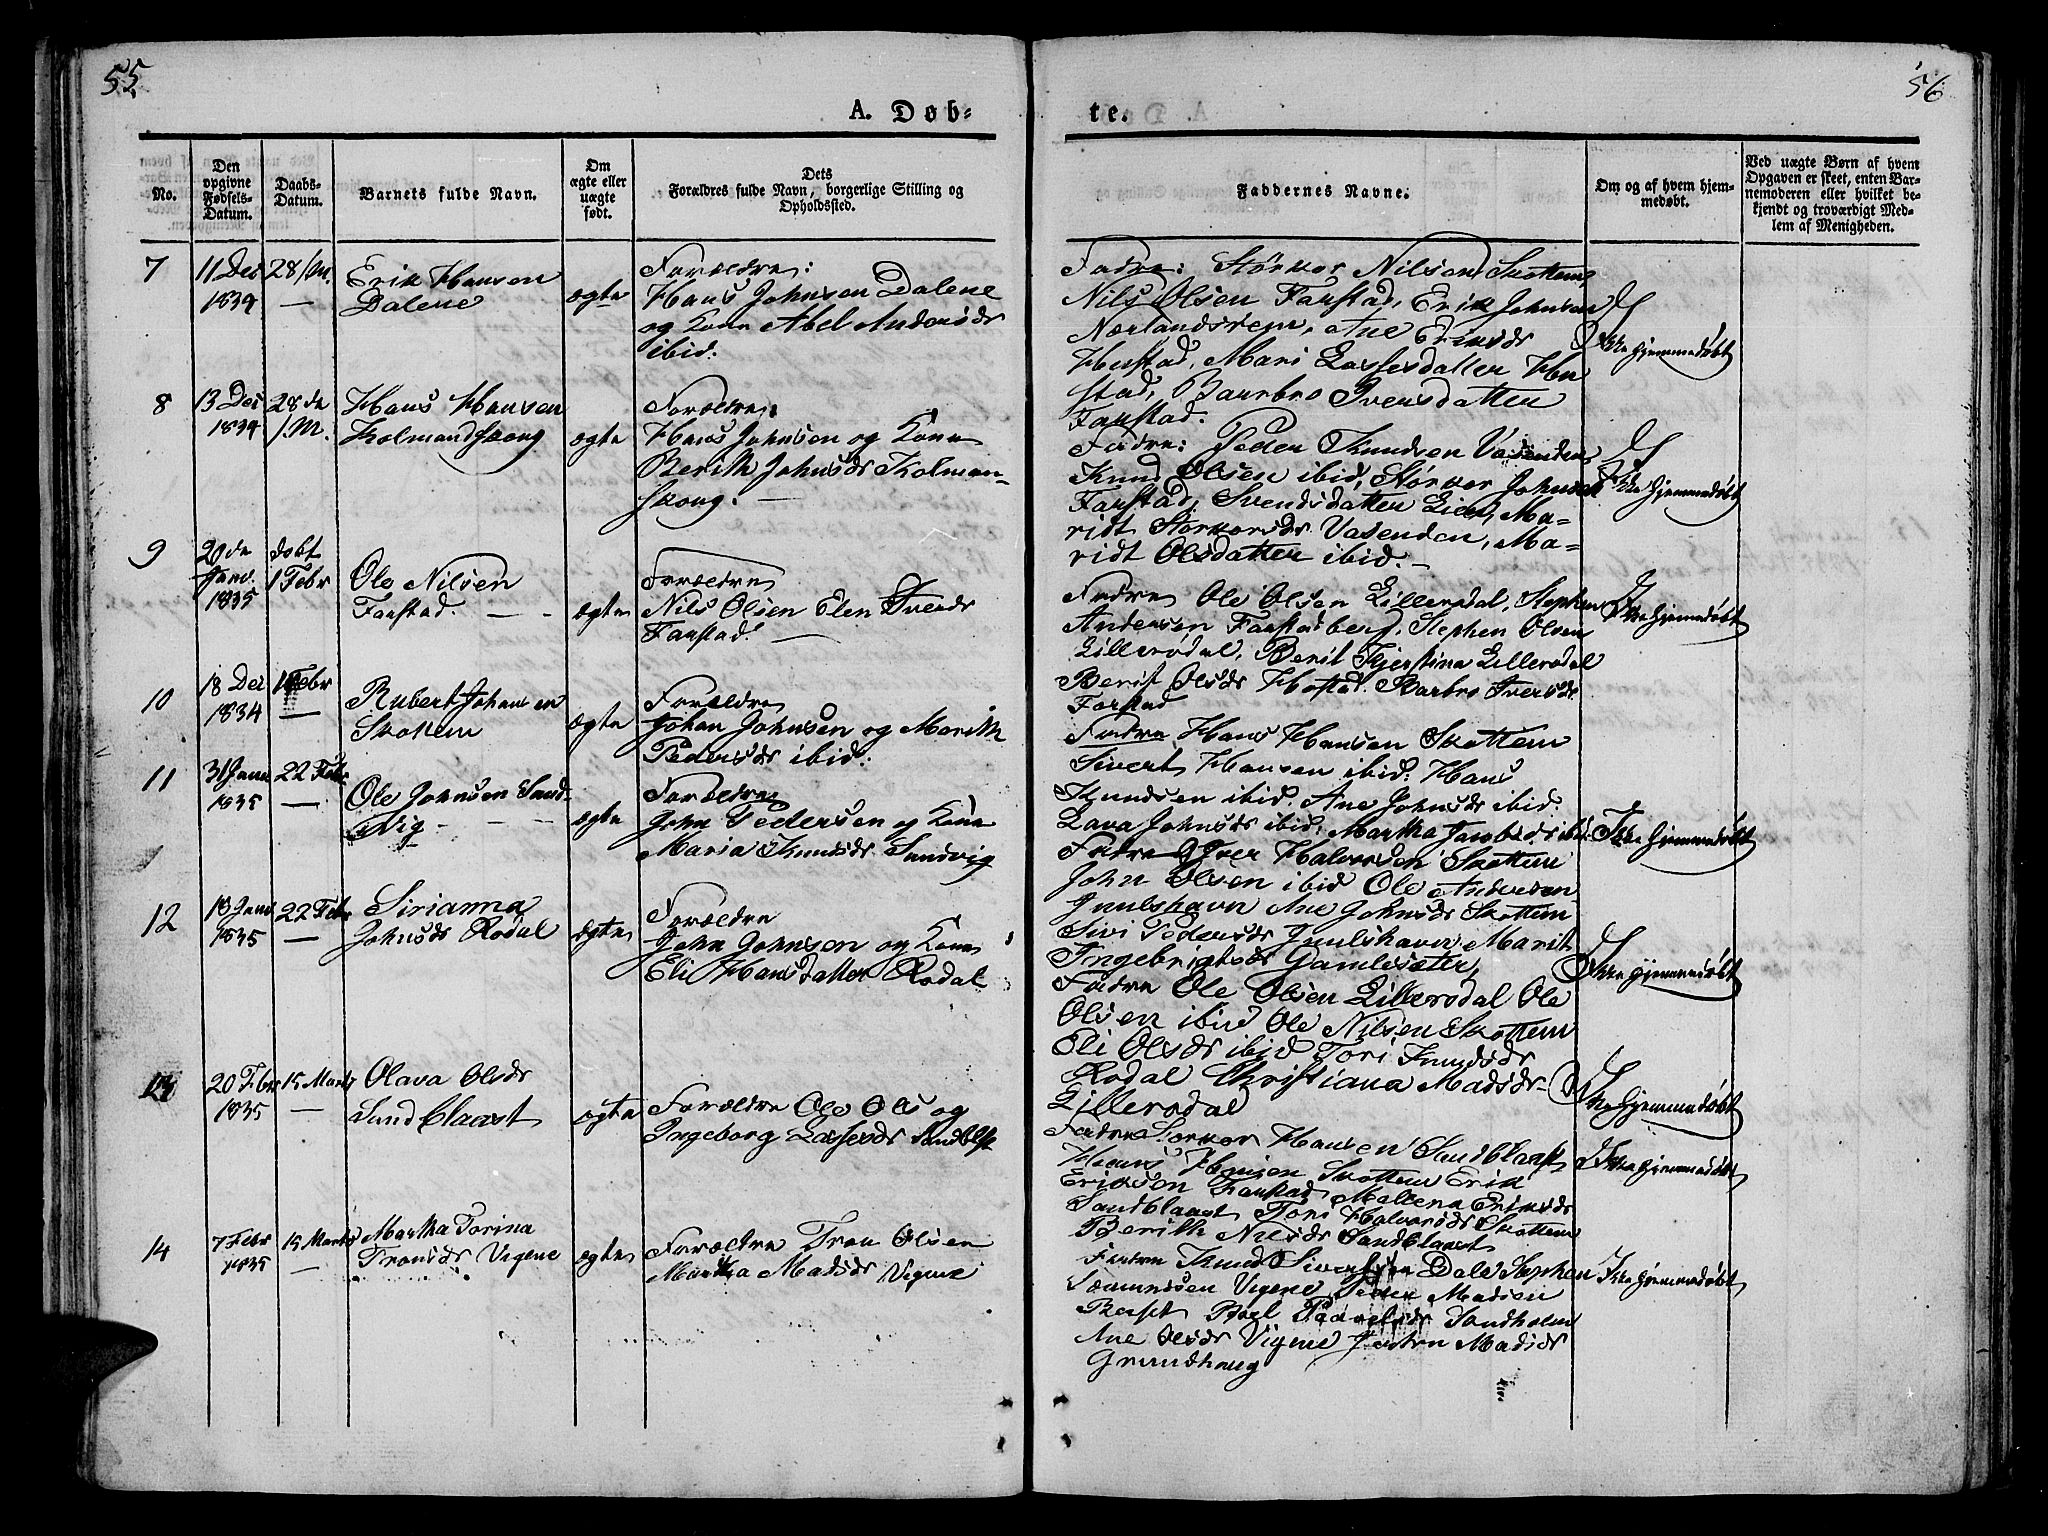 55
56
A. Døb-
te.
No.
Den opgivne Fødsels-Datum.
Daabs-Datum.
Barnets fulde Navn.
Om ægte eller uægte født.
Dets
Forældres fulde Navn, borgerlige Stilling og
Opholdssted.
Faddernes Navne.
Om og af hvem hjem-
medøbt.
Ved uægte Børn af hvem
Opgaven er skeet, enten Bar-
nemoderen eller hvilket be-
kjendt og troværdigt Med-
lem af Menigheden.
7
11 Des
1834
28 /M.
Erik Hansen
Dalene
ægte
Forældre:
Hans Johnsen Dalene
og Kone Abel Andersdr
ibid.
Fadre: Størkor Nilsen Skottem
Nils Olsen Farstad, Erik Johnsen
Nærlandsrem, Ane Eriksdr
Harstad, Mari Lassesdatter
stad, Baarbro Iversdatter
Farstad.
Ikke hjemmedøbt
8
13 Des
1834
28 de
/M.
Hans Hansen
Kolmandskong
ægte
Forældre:
Hans Johnsen og Kone
Berith Johnsdr Kolman-
skong.
Fadre: Peder Knudsen Vasenden,
Knud Olsen ibid, Størkor Johnsen
Farstad, Svendsdatter Lien, Ma-
ridt Størkorsdr Vasenden, Ma-
ridt Olsdatter ibid.
Ikke hjemmedøbt
9
20 de
Janv.
1835
døbt
1 Febr
Ole Nilsen
Farstad.
ægte
Forældre
Nils Olsen Elen Svends
Farstad.
Fadre Ole Olsen Lillerødal, Stephen
Andersen Farstadberg, Stephen Olsen
Lillerødal, Berit Kjerstina Lillerødal
Berit Olsdr Hostad. Barbro Iversdr
Farstad
Ikke hjemmedøbt
10
18 Des
1834
1 Febr
Rubert Johansen
Skottem
ægte
Forældre
Johan Johnsen og Marith
Pedersdr ibid.
Fadre Hans Hansen Skottem
Sivert Hansen ibid. Hans
Knudsen ibid. Ane Johnsdr ibid.
Lava Johnsdr ibid, Martha Jacobsdr ibid.
Ikke hjemmedøbt
11
31 Janv
1835
22 Febr
Ole Johnsen Sand-
Vig
ægte
Forældre
John Pedersen og Kone
Maria Knudsdr Sandvig
Fadre Iver Halvorsen Skottem
John Olsen ibid Ole Andersen
Juulshavn Ane Johnsdr Skottem
Sivi Pedersdr Juulshavn Marit
Ingebrigtsdr Gamlesæter,
Ikke hjemmedøbt
12
18 Janv
1835
22 Febr
Sirianna
Johnsdr Rødal
ægte
Forældre
John Johnsen og Kone
Eli Hansdatter Rødal
Fadre Ole Olsen Lillerødal Ole
Olsen ibid Ole Nilsen Skottem
Eli Olsdr ibid Tori Knudsdr
Rødal Christiana Madsdr
Lillerødal
Ikke hjemmedøbt
13
20 Febr
1835
15 Marts
Olava Olsdr
Sandblaast
ægte
Forældre Ole Ols og
Ingeborg Lassesdr Sandblst
Fadre Størkor Hansen Sandblaast
Hans Hansen Skottem Erik
Eriksen Farstad Mallena Eriksdr
Sandblaast Tori Halvorsdr Skottem
Berith Nilsdr Sandblaast
Ikke hjemmedøbt
14
7 Febr
1835
15 Marts
Martha Torina
Tronsdr Vigene
ægte
Forældre Tron Olsen
Martha Madsdr Vigene
Fadre Knud Dale Stephen
Sæmundsen Vigene Peder Madsen
Berset Paavelsdr Sandholm
Ane Olsdr Vigene Madsdr
Grundhaug
Ikke hjemmedøbt